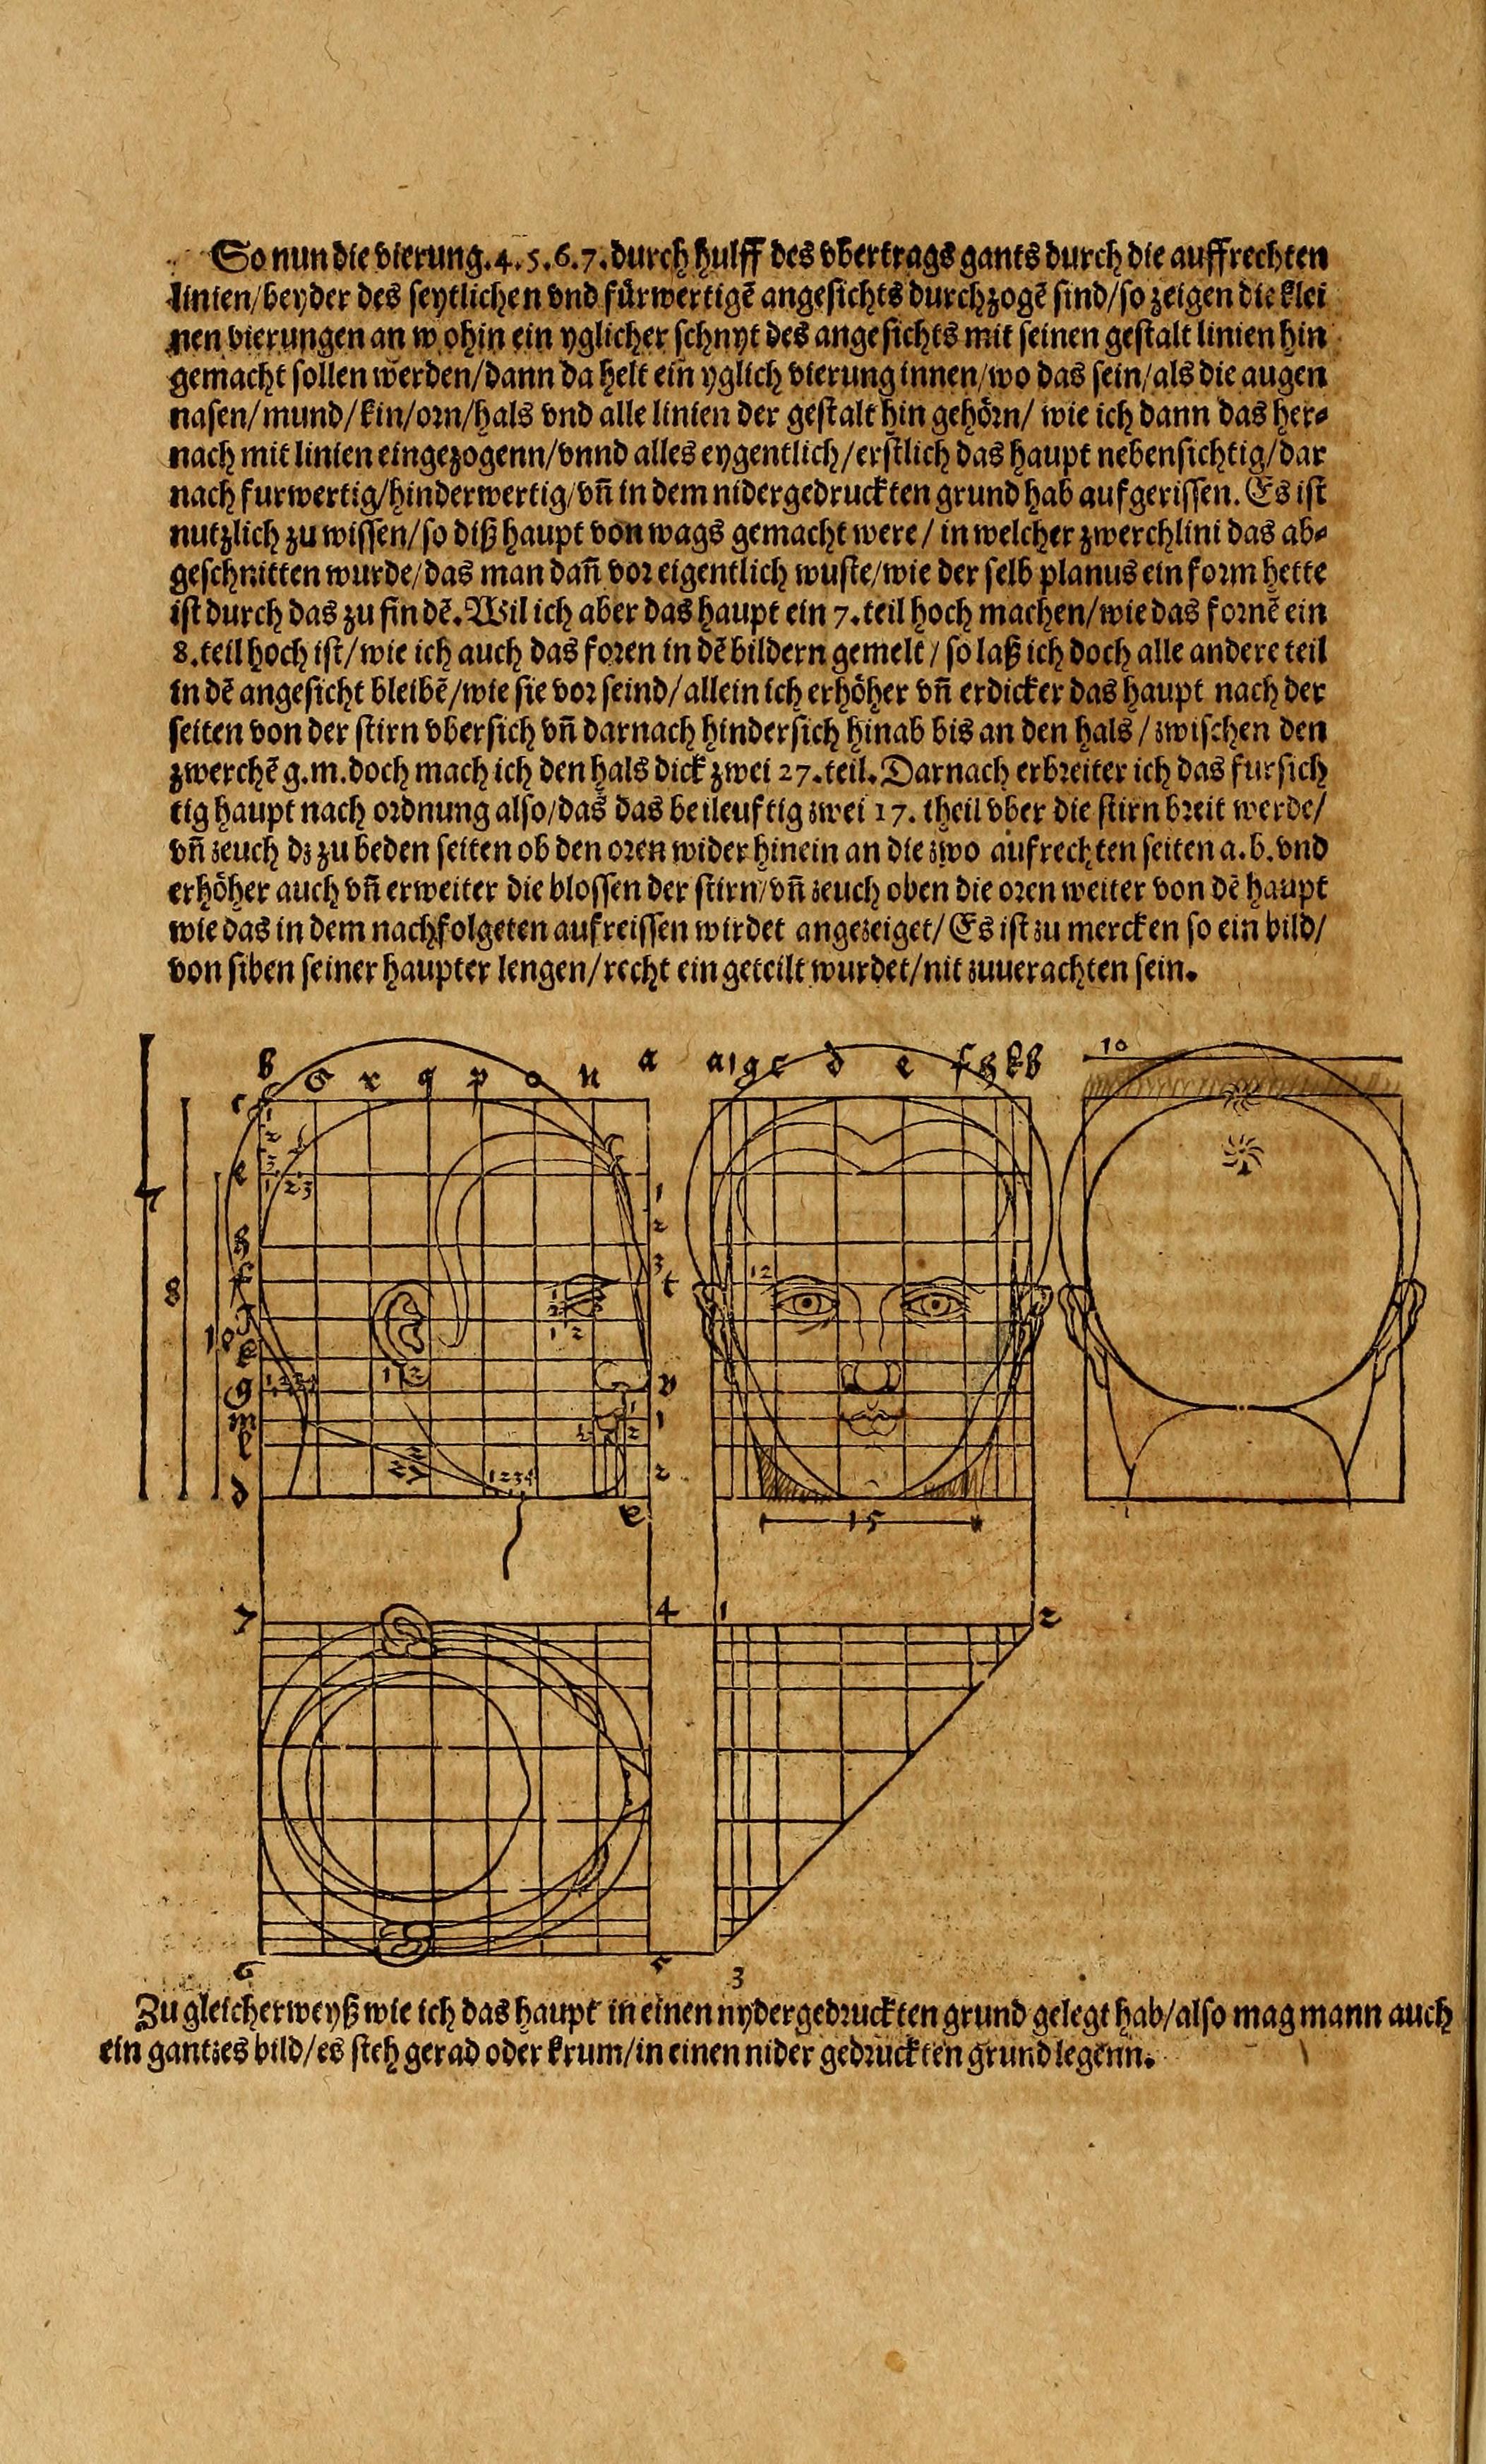 So nun die vierung.4.5.6.7.durch hulff des vbertrags gants durch die auffrechten
linien/beyder des seytlichen vnd fürwertigē angesichts durchzogē sind/so zeigen die klei
nen vierungen an wohin ein yglicher schnyt des angesichts mit seinen gestalt linien hin
gemacht sollen werden/dann da helt ein yglich vierung innen/wo das sein/als die augen
nasen/mund/kin/orn/hals vnd alle linien der gestalt hin gehörn/ wie ich dann das her⸗
nach mit linien eingezogenn/vnnd alles eygentlich/erstlich das haupt nebensichtig/dar
nach furwertig/hinderwertig/vn̄ in dem nidergedruckten grund hab aufgerissen. Es ist
nutzlich zu wissen/so diß haupt von wags gemacht were/ in welcher zwerchlini das ab⸗
geschnitten wurde/das man dan̄ vor eigentlich wuste/wie der selb planus ein form hette
ist durch das zu findē. Wil ich aber das haupt ein 7.teil hoch machen/wie das fornē ein
8.teil hoch ist/wie ich auch das foren in dē bildern gemelt/ so laß ich doch alle andere teil
in dē angesicht bleibē/wie sie vor seind/allein ich erhöher vn̄ erdicker das haupt nach der
seiten von der stirn vbersich vn̄ darnach hindersich hinab bis an den hals/zwischen den
zwerchē g.m.doch mach ich den hals dick zwei 27.teil. Darnach erbreiter ich das fursich
tig haupt nach ordnung also/das das beileuftig zwei 17. theil vber die stirn breit werde/
vn̄ zeuch dz zu beden seiten ob den oren wider hinein an die zwo aufrechten seiten a.b.vnd
erhöher auch vn̄ erweiter die blossen der stirn/vn̄ zeuch oben die oren weiter von dē haupt
wie das in dem nachfolgeten aufreissen wirdet angezeiget/ Es ist zu mercken so ein bild/
von siben seiner haupter lengen/recht eingeteilt wurdet/nit zuuerachten sein.
b s r q p o n a
a i g c d e f h k b
10
7
8
10
12
15
7 4 1 2
6 5 3
Zu gleicherweyß wie ich das haupt in einen nydergedruckten grund gelegt hab/also mag mann auch
ein gantzes bild/es steh gerad oder krum/in einen nider gedruckten grund legenn.